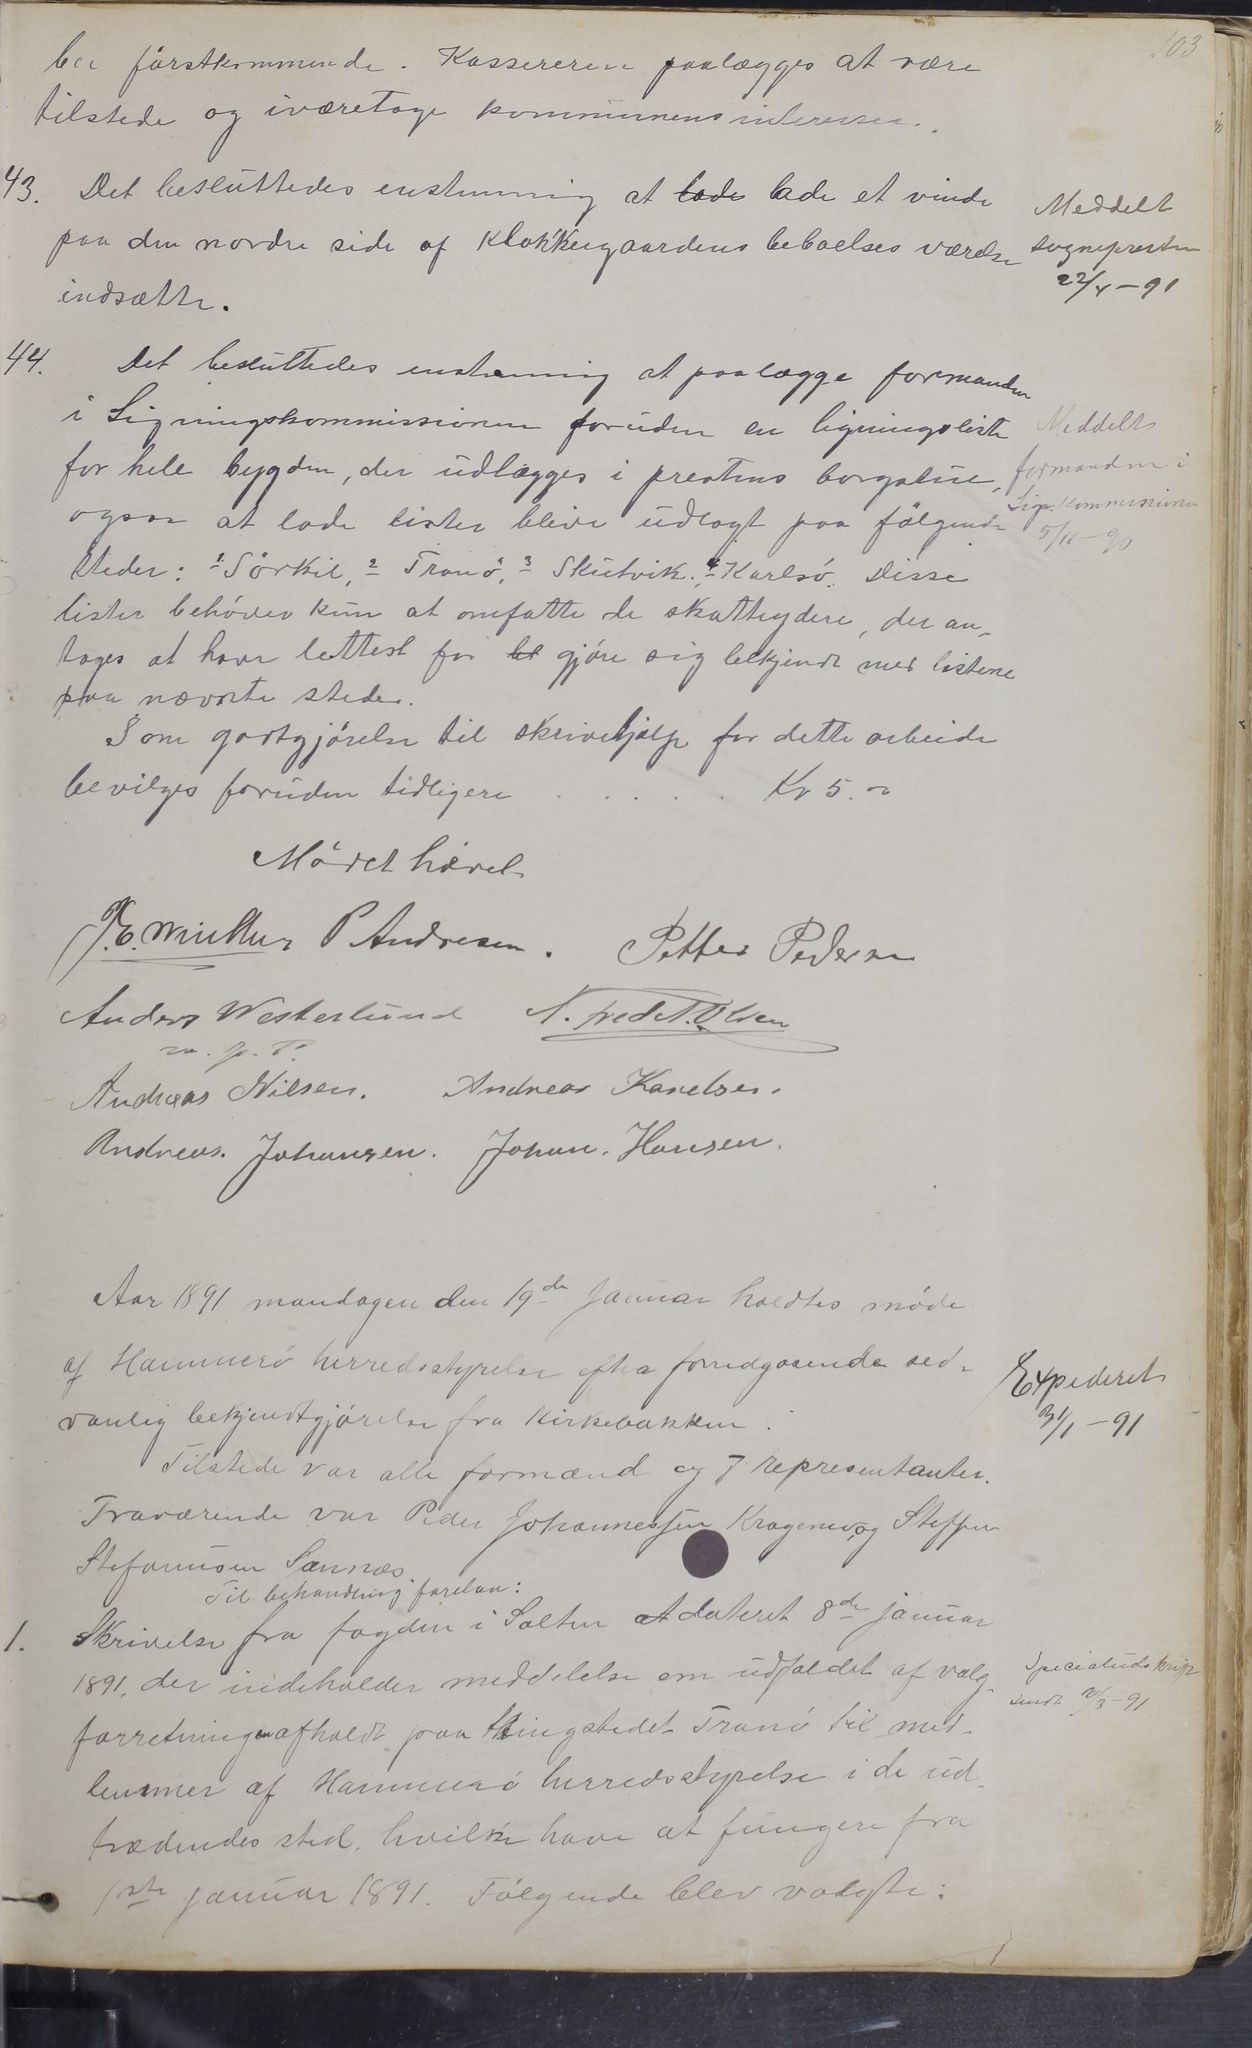 103
ber förstkommende. Kassereren paalægges at være
tilstede og iværetage kommunens interesser.
43. Det besluttedes enstemmig at lade lade et vindu
paa den nordre side af Klokkergaardens beboelses værelse
indsætte.
Meddelt
sognepresten
22/4 - 91
44. Det besluttedes enstemmig at paalægge formanden
i Ligningskommissionen foruden en ligningsliste
for hele bygden, der udlægges i prestens borgstue,
ogsaa at lade lister blive udlagt paa fölgende
steder: 1 Sörkil, 2 Tranö, 3 Skutvik, 4 Karlsö. Disse
lister behöver kun at omfatte de skatteydere, der an-
tages at have lettest for at gjöre sig bekjendt med listerne
paa nævnte steder.
Meddelt
formanden i
Lign. kommissionen
5/11 - 90
Som godtgjörelse til skrivehjælp for dette arbeide
bevilges foruden tidligere . . . . . Kr 5.
Mödet hævet.
P Andresen. Petter Pedersen
Anders Westerlund N. Fred N. Olsen
m. p. P.
Andreas Nilsen. Andreas Karelsen.
Andreas. Johansen. Johan. Hansen.
Aar 1891 mandagen den 19de Januar holdtes möde
af Hammerö herredsstyrelse efter foredgaaende sed-
vanlig bekjendtgjörelse fra Kirkebakken.
Expederet
31/1 - 91
Tilstede var alle formænd og 7 representanter.
Fraværende var Peder Johannessen Kragenes og Steffen
Stefanusen Sannæs
Til behandling forelaa:
1. Skrivelse fra fogden i Salten dateret 8de januar
1891, der indeholder meddelelse om udfaldet af valg
forretningen afholdt paa thingstedet Tranö til med-
lemmer af Hammerö herredsstyrelse i de ud-
trædendes sted, hvilke have at fungere fra
1ste januar 1891. Fölgende blev valgte:
Specialudskrift
sendt 2/3 - 91